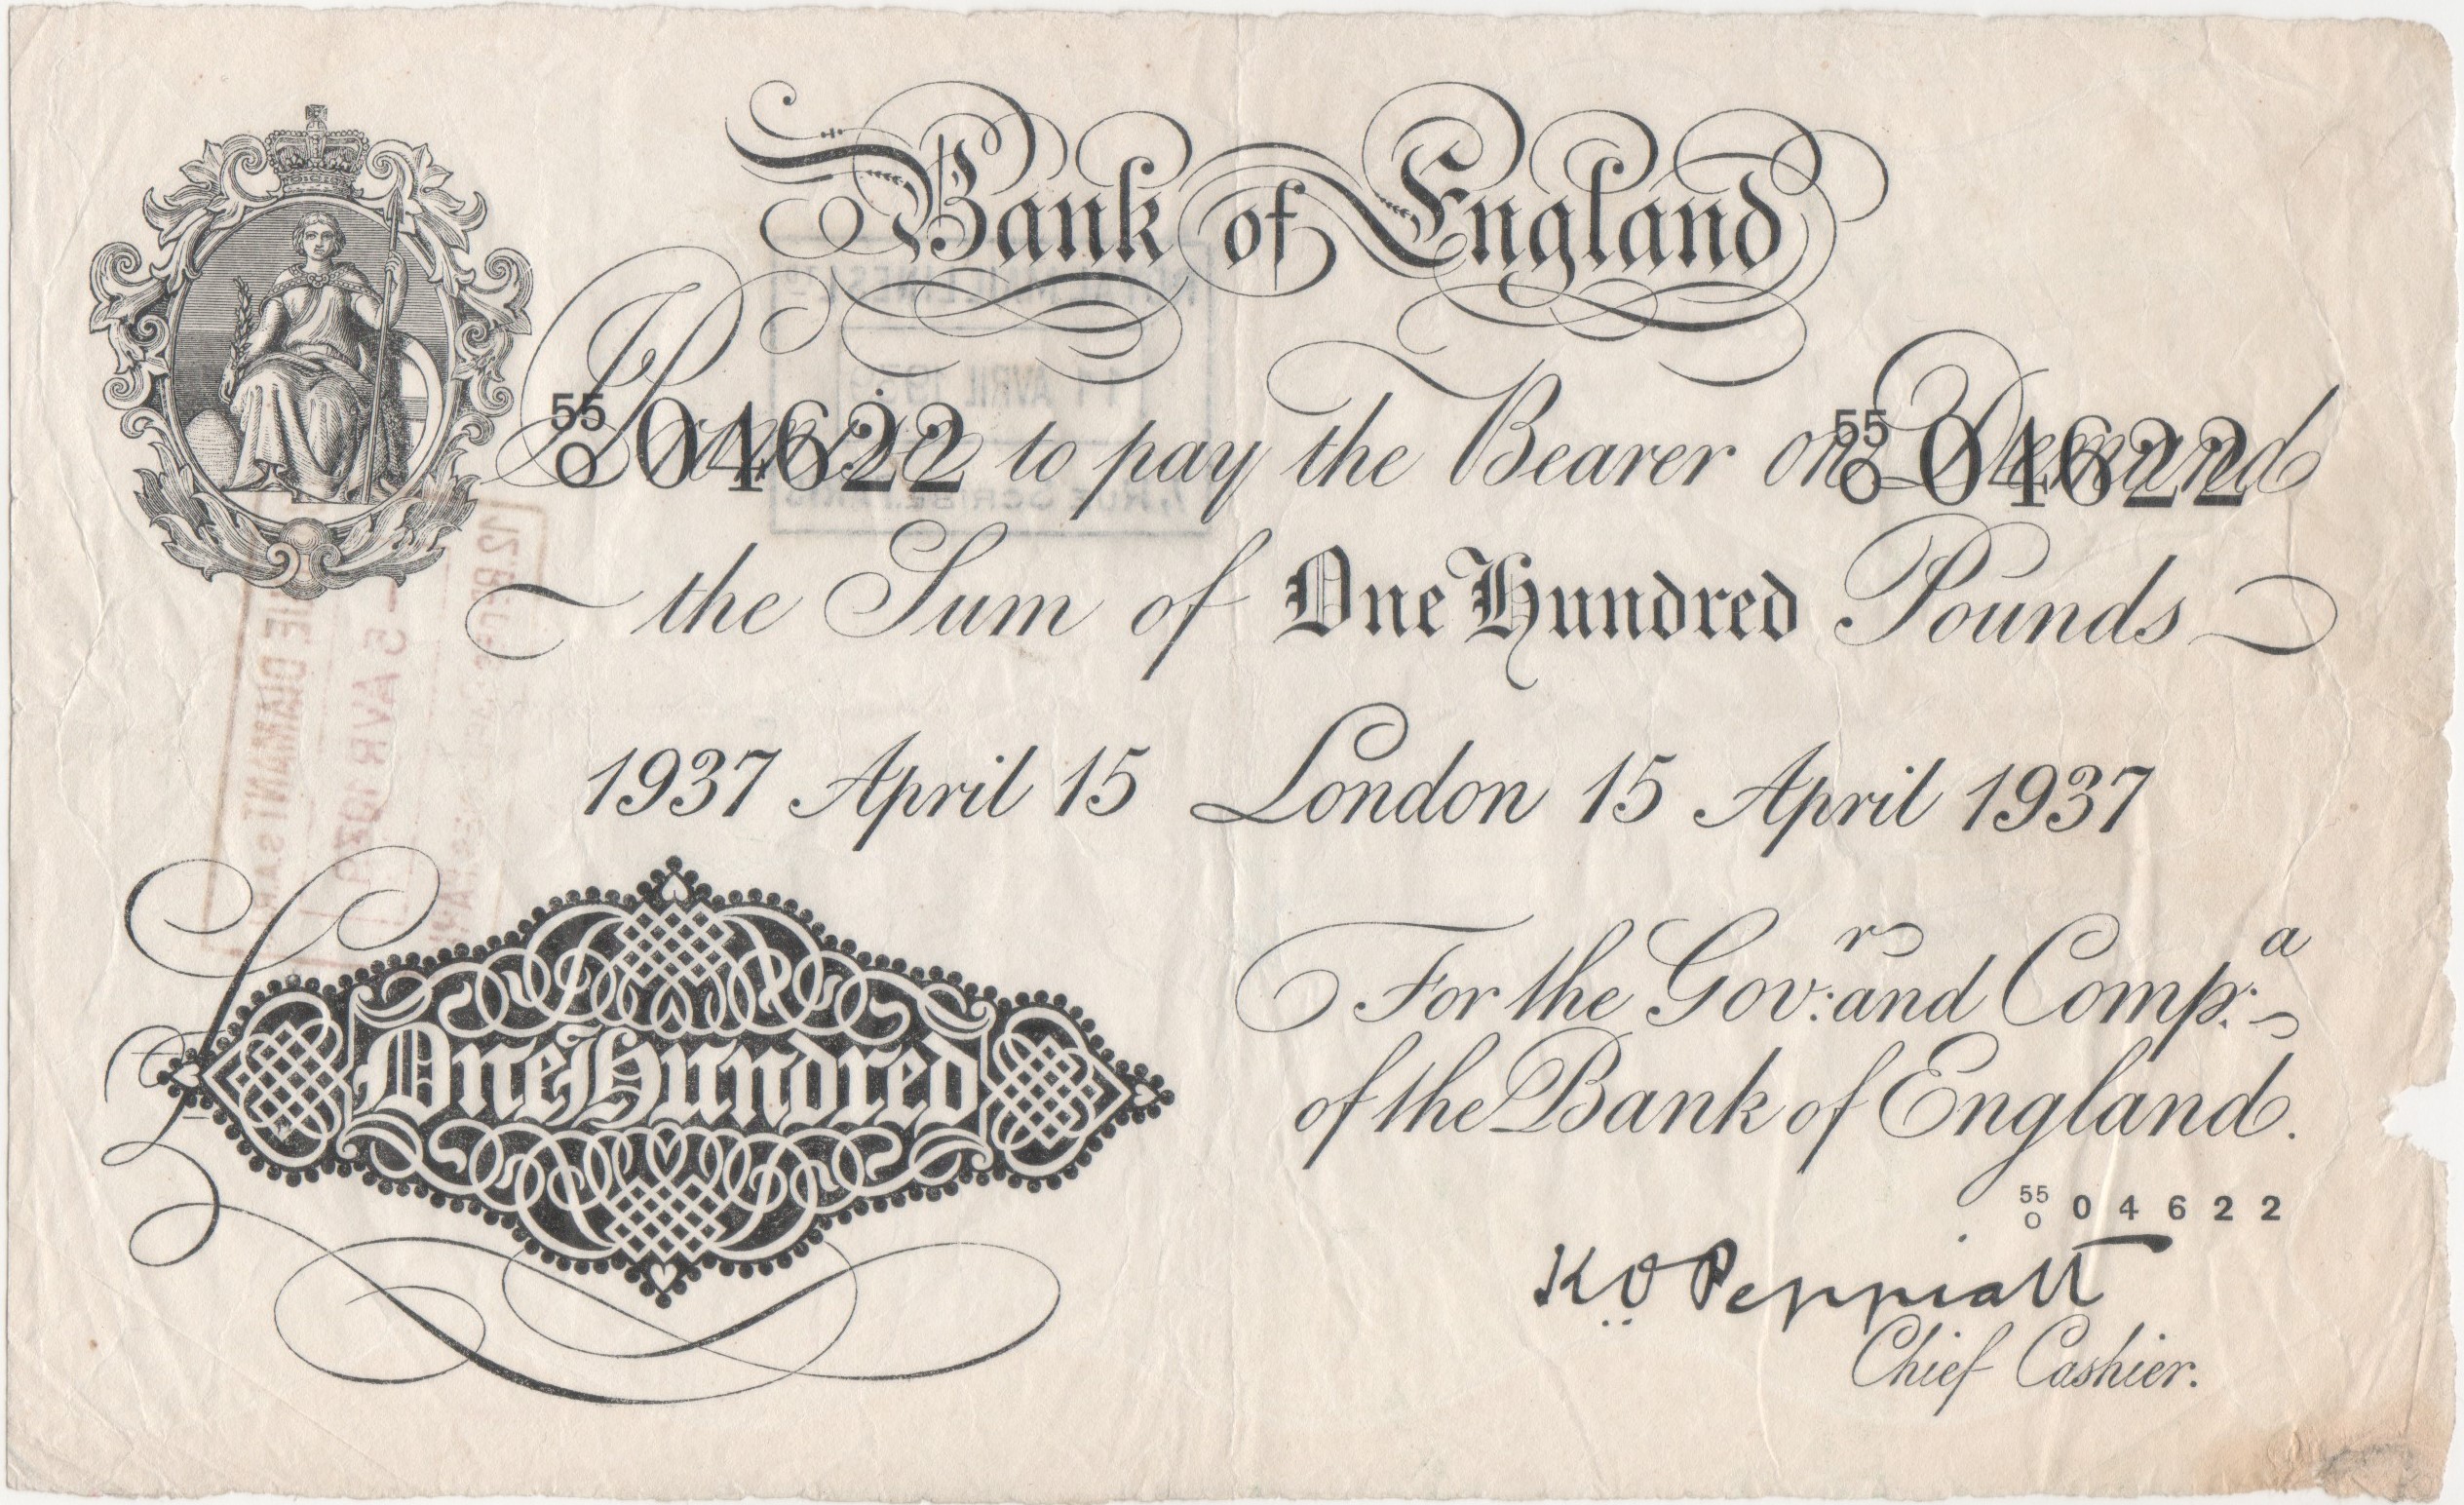 Bank of England
55
O 04622 I Promise to pay the Bearer on Demand 55
O 04622
the Sum of One Hundred Pounds
1937 April 15 London 15 April 1937
For the Gov:r and Comp:a
of the Bank of England.
One Hundred
55
O 04622
K O Peppiatt
Chief Cashier.
11 AVRIL
RUE SCRIBE
- 5 AVR
DIAMANT